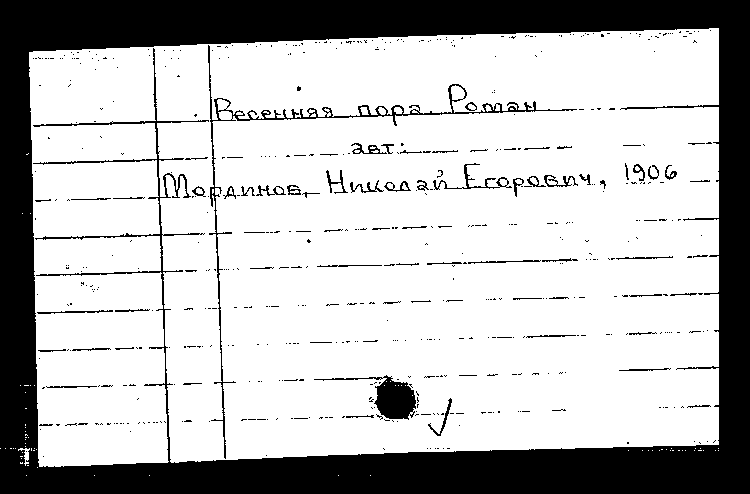 Весенняя пора. Роман
авт:
Мординов, Николай Егорович, 1906